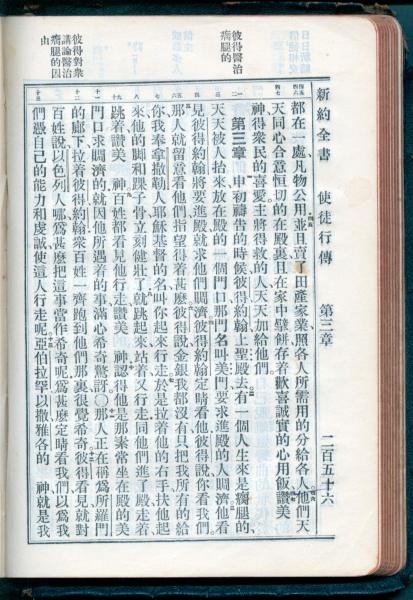 新約全書 使徒行傳 第三章 二百五十六
都在一處凡物公用並且賣了田產家業照各人所需用的分給各人他們天
天同心合意恒切的在殿裏且在家中擘餅存着歡喜誠實的心用飯讚美
神得衆民的喜愛主將得救的人天天加給他們
第三章 申初禱告的時候彼得約翰上聖殿去有一個人生來是瘸腿的
天天被人抬來放在殿的一個門口那門名叫美門要求進殿的人賙濟他看
見彼得約翰將要進殿就求他們賙濟彼得約翰定睛看他彼得說你看我們
那人就留意看他們指望得着甚麽彼得說金銀我都沒有只把我所有的給
你我奉拿撒勒人耶穌基督的名叫你起來行走於是拉着他的右手扶他起
來他的脚和踝子骨立刻健壯了就跳起來站着又行走同他們進了殿走着
跳着讚美 神百姓都看見他行走讚美 神認得他是那素常坐在殿的美
門口求賙濟的就因他所遇着的事滿心希奇驚訝○那人正在稱爲所羅門
的廊下拉着彼得約翰衆百姓一齊跑到他們那裏很覺希奇彼得看見就對
百姓說以色列人哪爲甚麽把這事當作希奇呢爲甚麽定睛看我們以爲我
們憑自己的能力和虔誠使這人行走呢亞伯拉罕以撒雅各的 神就是我
彼得醫治
瘸腿的
彼得對衆
講論醫治
瘸腿的因
由